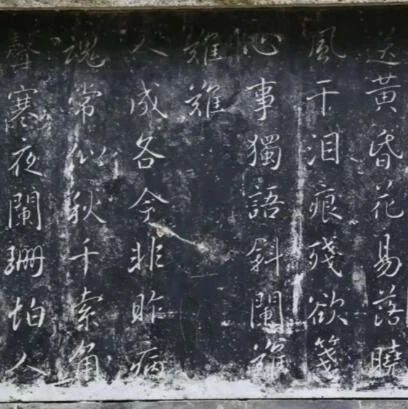 送黃昏花易落曉
風干泪痕殘欲箋
心事獨語斜闌難
難難
人成各今非昨病
魂常似秋千索角
聲寒夜闌珊怕人